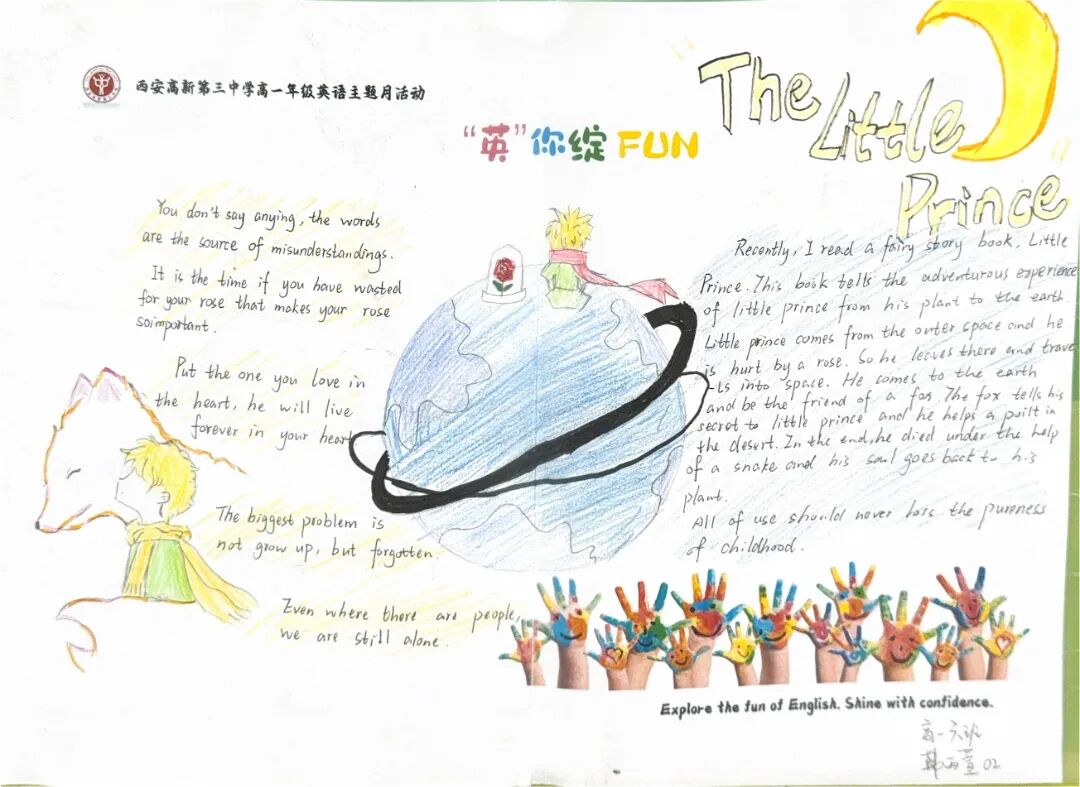 西安高新第三中学高一年级英语主题月活动
“英”你绽 FUN
The
Little
Prince
You don't say anying, the words
are the source of misunderstandings.
It is the time if you have wasted
for your rose that makes your rose
soimportant.
Put the one you love in
the heart, he will live
forever in your heart
The biggest problem is
not grow up, but forgotten.
Even where there are people,
we are still alone.
Recently, I read a fairy story book, Little
Prince. This book tells the adventurous experience
of little prince from his plant to the earth.
Little prince comes from the outer space and he
is hurt by a rose. So he leaves there and trave
-ls into space. He comes to the earth
and be the friend of a fox. The fox tells his
secret to little prince and he helps a puilt in
the desert. In the end, he died under the help
of a snake and his soul goes back to his
plant.
All of use should never lots the pureness
of childhood.
Explore the fun of English. Shine with confidence.
高一六班
02